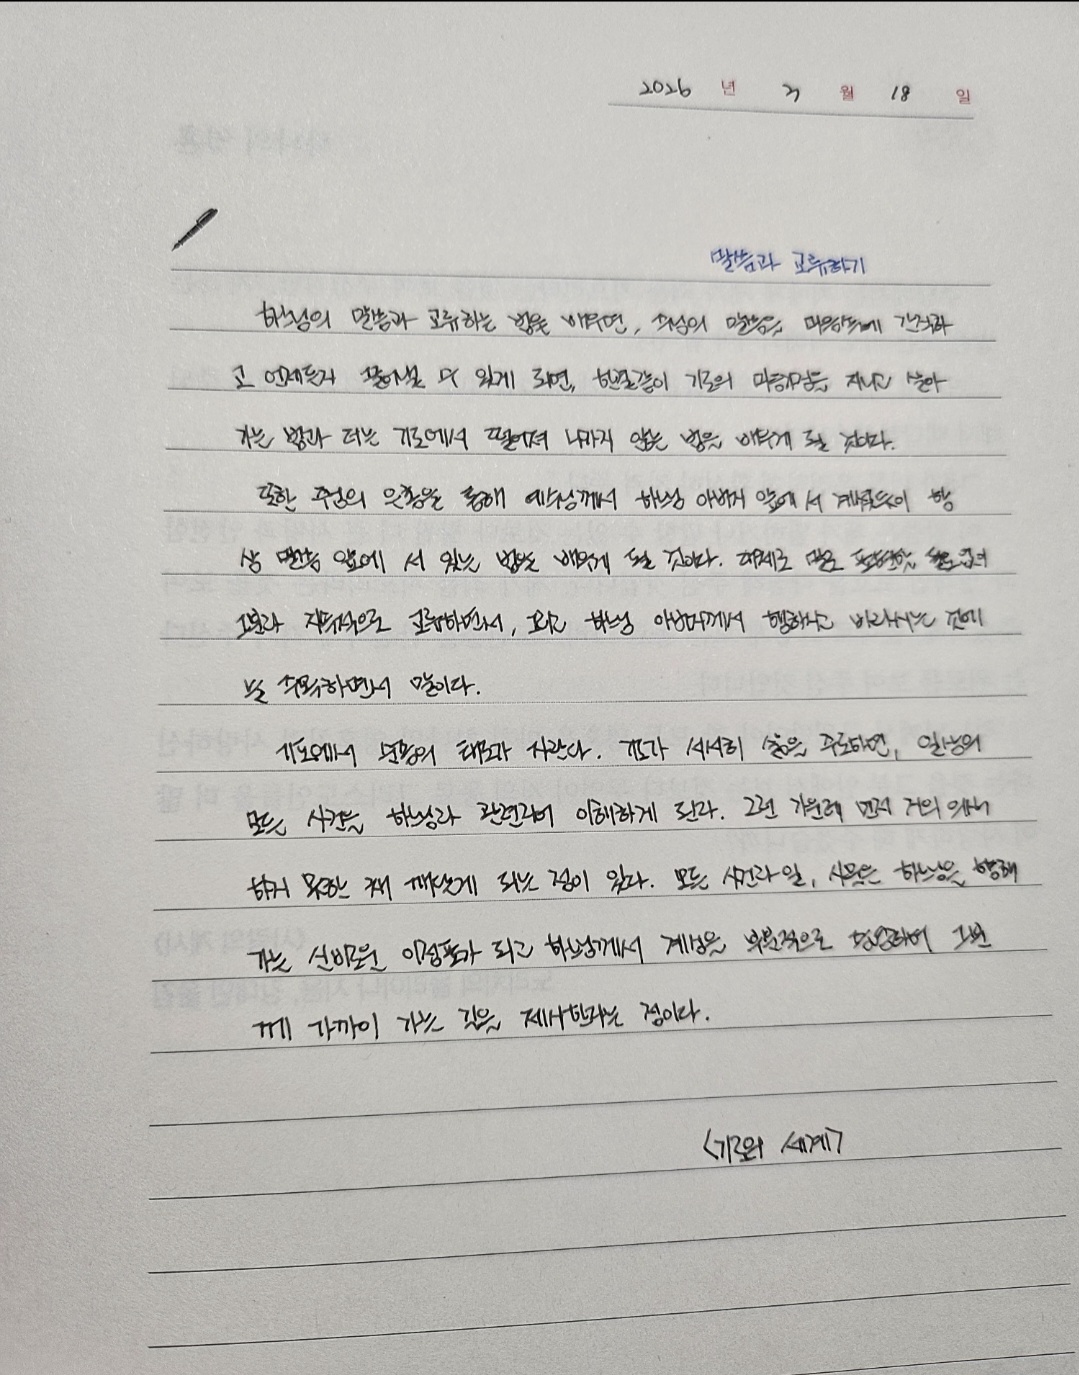 2026 년 3 월 18 일
말씀과 교류하기
하느님의 말씀과 교류하는 법을 배우면, 주님의 말씀을 마음속에 간직하
고 언제든지 꺼낼 수 있게 되면, 한결같이 기도의 마음가짐을 지니고 살아
가는 법과 더는 기도에서 떨어져 나가지 않는 법을 배우게 될 것이다.
또한 주님의 은총을 통해 예수님께서 하느님 아버지 앞에 서 계셨듯이 항
상 말씀 앞에 서 있는 법을 배우게 될 것이다. 대체로 말로 표현할 필요 없이
그분과 지속적으로 교류하면서, 또한 하느님 아버지께서 행하시고 바라시는 것에
늘 주목하면서 말이다.
기도에서 순명의 태도가 자란다. 기도가 서서히 삶을 주도하면, 일상의
모든 사건을 하느님과 관련지어 이해하게 된다. 그런 가운데 먼저 거의 의식
하지 못한 채 깨닫게 되는 점이 있다. 모든 사건과 일, 사물은 하느님을 향해
가는 신비로운 이정표가 되고 하느님께서 계심을 부분적으로 반영하며 그분
께 가까이 가는 길을 제시한다는 점이다.
<기도의 세계>